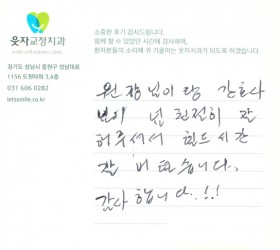 소중한 후기 감사드립니다.
함께 할 수 있었던 시간에 감사하며,
환자분들의 소리에 귀 기울이는 웃자치과가 되도록 하겠습니다.
웃자교정치과
경기도 성남시 중원구 성남대로
1156 도원타워 3,4층
031 606 0282
letssmile.co.kr
원장님이랑 간호사
넘 친절히 잘
해주셔서 힘든 시간
잘 버텼습니다.
감사합니다..!!